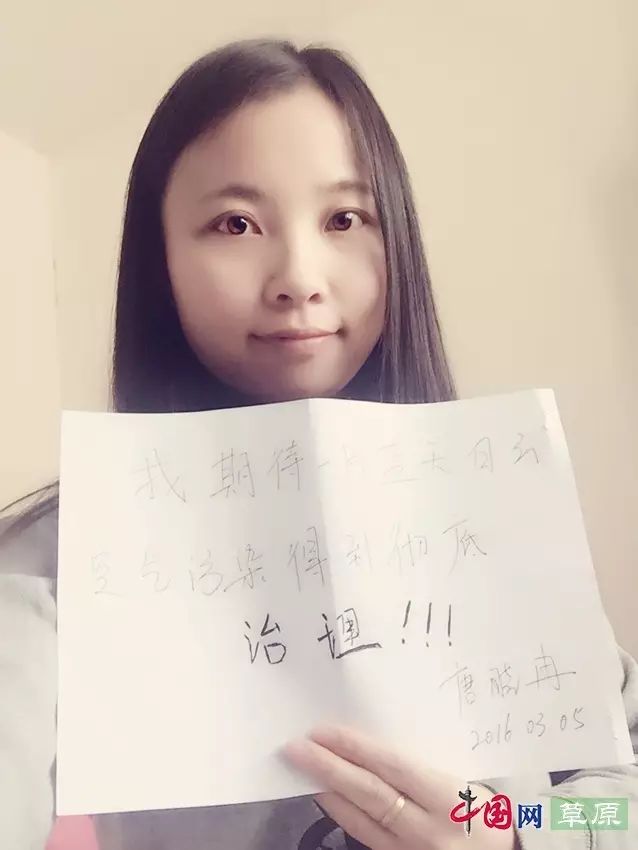 我期待一片蓝天白云
空气污染得到彻底
治理!!!
唐晓冉
2016 03 05
中国网 草原